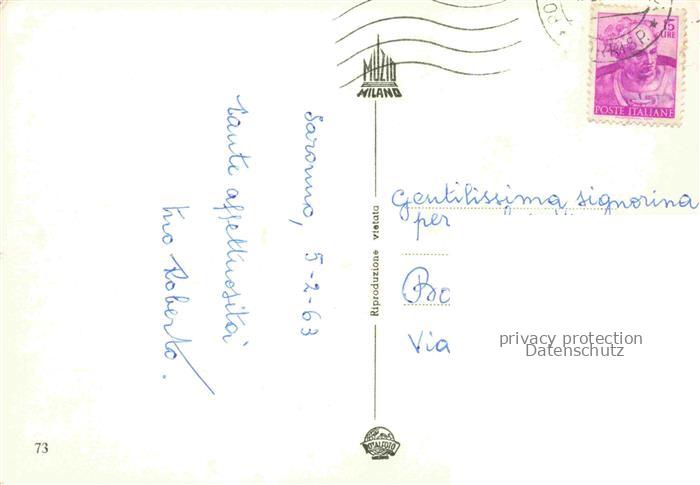 Saronno, 5-2-63
tante affettuosità
tuo Roberto.
MUZIO
MILANO
Riproduzione vietata
ROTALFOTO
MILANO
15
LIRE
POSTE ITALIANE
Gentilissima signorina
per
Bo
Via
privacy protection
Datenschutz
73